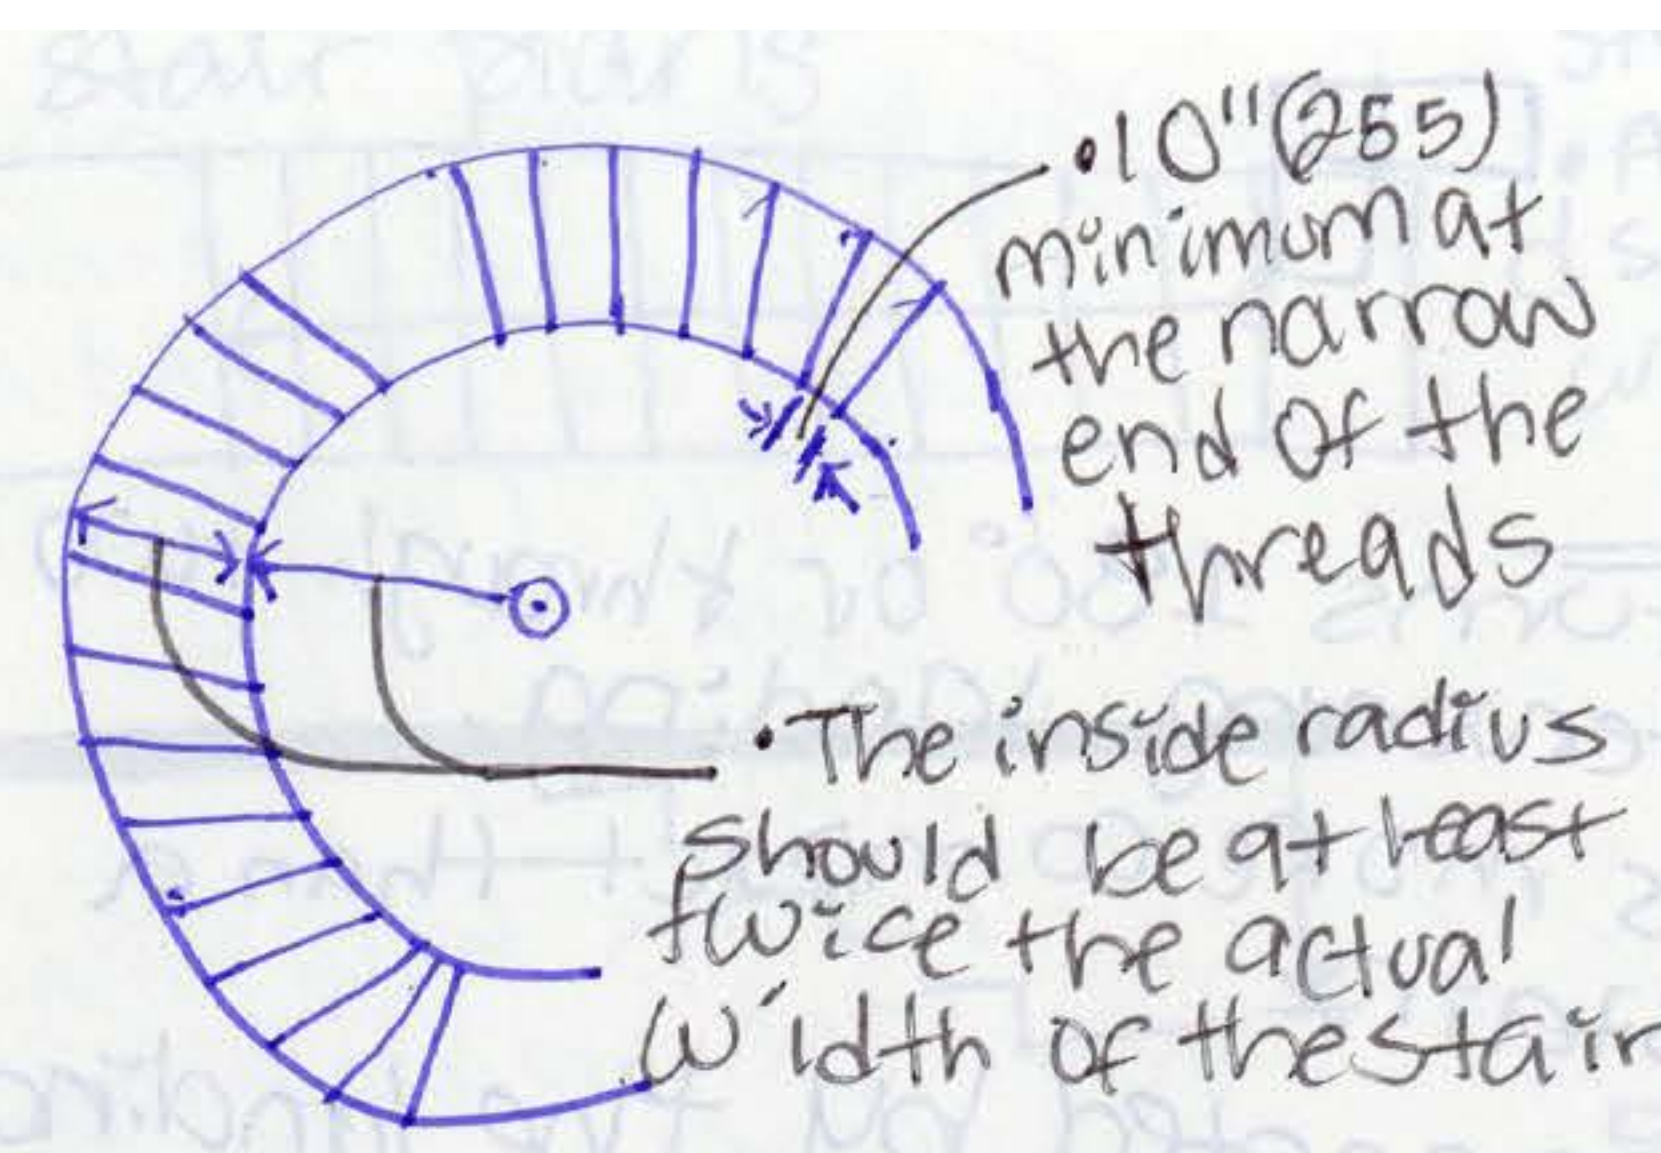 •10"(255)
minimum at
the narrow
end of the
threads
•The inside radius
should be at least
twice the actual
width of the stair